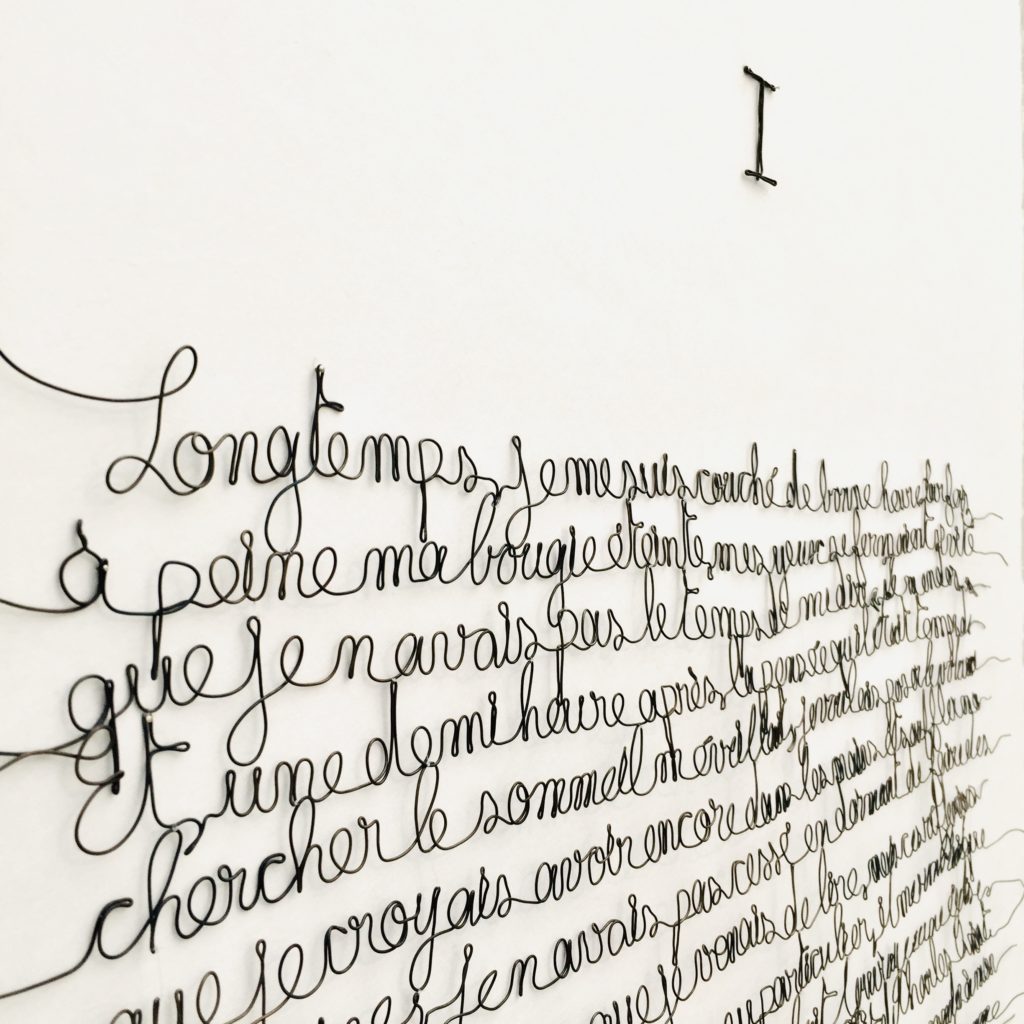 I
Longtemps, je me suis couché de bonne heure. Parfois,
à peine ma bougie éteinte, mes yeux se fermaient si vite
que je n avais pas le temps de me dire: Je m endors.
Et une demi heure après, la pensée qu il était temps de
chercher le sommeil m éveillait; je voulais poser le volume
que je croyais avoir encore dans les mains et souffler ma
je n avais pas cessé en dormant de faire des
que je venais de lire, mais ces
particulier; il me semblait que